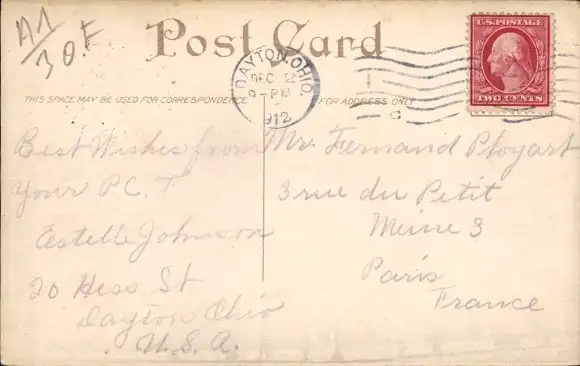 A1/30F
Post Card
U.S. POSTAGE
TWO CENTS
DAYTON, OHIO.
DEC 22
9-PM
1912
C
THIS SPACE MAY BE USED FOR CORRESPONDENCE
FOR ADDRESS ONLY
Best Wishes from
your P.C.F.
Estelle Johnson
20 Hess St
Dayton Ohio
U.S.A.
Mr. Fernand Ployart
3 rue du Petit
Meine 3
Paris
France